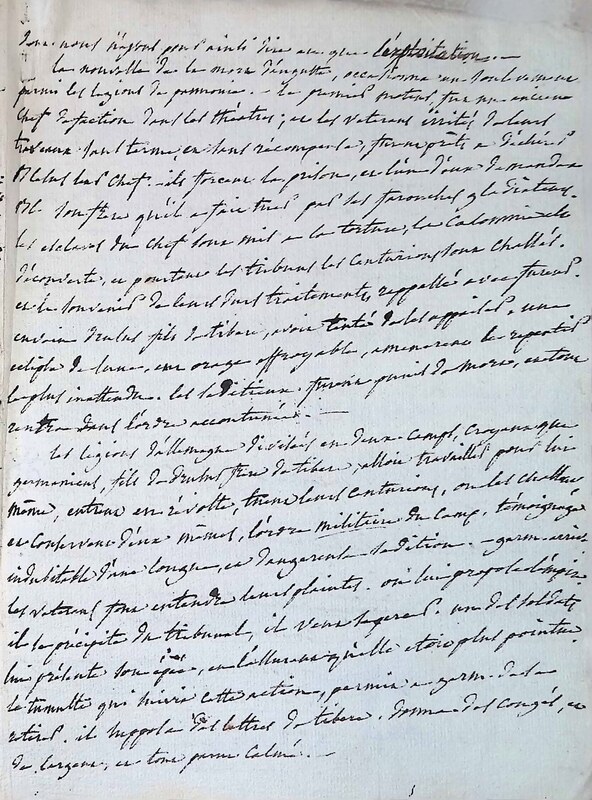 dont nous n'avons pour ainsi dire eu que l'exploitation. —
la nouvelle de la mort d'auguste, occasionna un soulevement
parmi les legions de pannonie. — le premier moteur, fut un ancien
chef de faction dans les théatres; et les veterans irrités de leurs
travaux sans terme, et sans récompense, furent prêts a déchirer
Blesus leur chef. ils forcent la prison, et l'un d'eux demande a
Bl. son frere qu'il a fait tuer par ses farouches gladiateurs.
les esclaves du chef sont mis a la torture, la calomnie est
découverte, et pourtant les tribuns les centurions sont chassés.
et le souvenir de leurs durs traitements, rappellé avec fureur.
envain drusus fils de tibere, avoit tenté de les appaiser. une
eclipse de lune, un orage effroyable, amenerent le repentir
le plus inattendu. les séditieux furent punis de mort, et tout
rentra dans l'ordre accoutumé. —
les legions d'allemagne divisées en deux camps, croyant que
germanicus, fils de drusus frere de tibere, alloit travailler pour lui
même, entrent en révolte, tuent leurs centurions, ou les chassent
et conservent d'eux mêmes, l'ordre militaire du camp, témoignage
indubitable d'une longue, et dangereuse sédition. — germ. arrive
les veterans font entendre leurs plaintes. on lui propose l'empire
il se précipite du tribunal, il veut se tuer. un des soldats
lui présente son épée, en l'assurant qu'elle etoit plus pointue.
le tumulte qui suivit cette action, permit a germ. de se
retirer. il suppose des lettres de tibere. donne des congés, et
de l'argent, et tout parut calmé. —